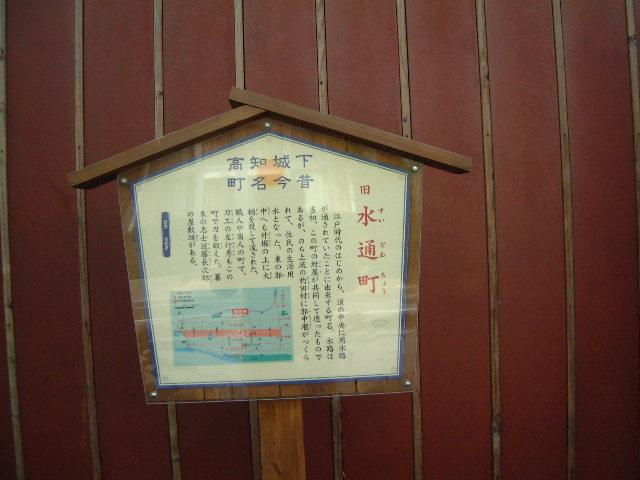 高知城下
町名今昔
旧 水通町
すいどおちょう
江戸時代のはじめから、道の中央に用水路
が通されていたことに由来する町名。水路は
当初、この町の紺屋が共同して造ったもので
あるが、のち上流の杓田村に郭中堰がつくら
れて、住民の生活用
水となった。東の郭
中へも外堀の上に大
樋を渡して流された。
職人や商人の町で、
刀工の左行秀もこの
町で刀を鍛えた。幕
末の志士近藤長次郎
の屋敷跡がある。